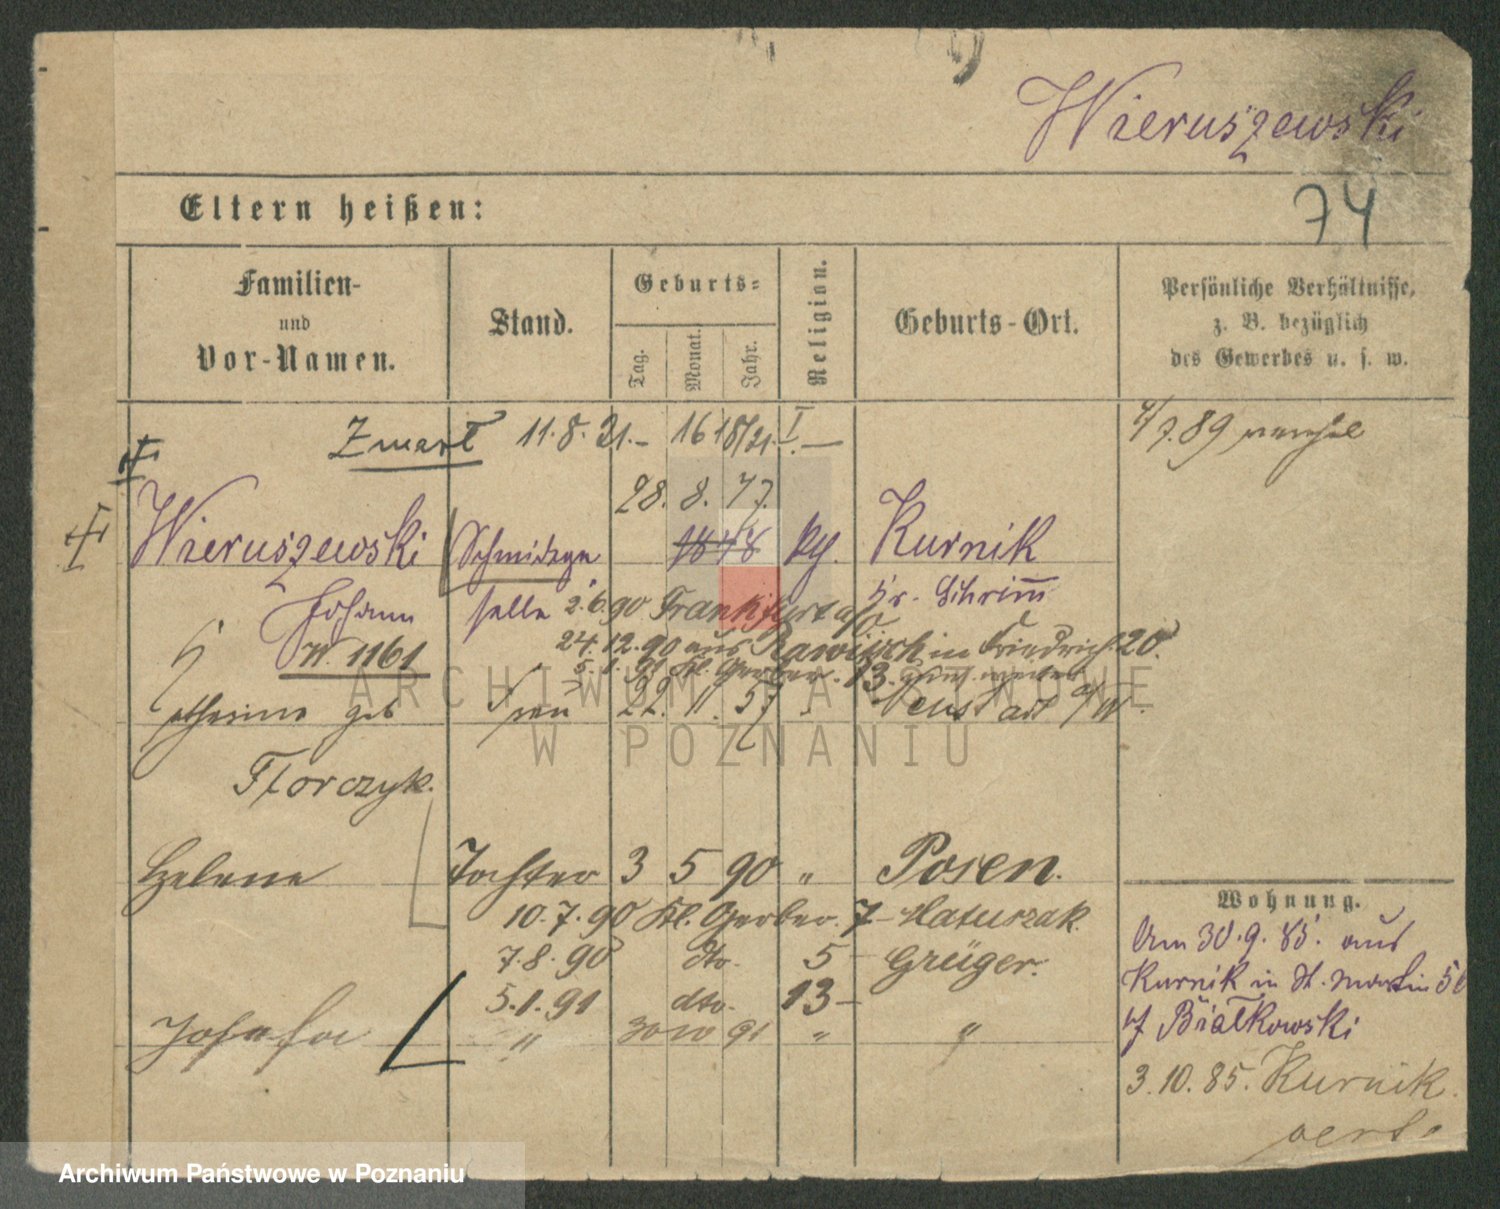 Wieruszewski
74
Eltern heißen:
Familien-
und
Vor-Namen.
Stand.
Geburts-
Tag.
Monat.
Jahr.
Religion.
Geburts-Ort.
Persönliche Verhältnisse,
z. B. bezüglich
des Gewerbes u. s. w.
Zmarł 11.8.21.- 16
4/7.89
28. 8. 47.
Wieruszewski Schmidege 1848 kth. Kurnik
Johann selle 2.6.90 Frankfurt a/O Kr. Schrimm
N. 1161 24.12.90 aus Rawitsch in Friedrich. 20.
5.1.91 Kl. Gerber. 13.
geb Frau 22. 11. 57
Florczyk.
Helene Tochter 3 5 90 " Posen.
10.7.90 Kl. Gerber. 7- Matuszak.
7.8.90 dto. 5- Grüger.
5.1.91 dto. 13-
Josefa " 30 10 91 " "
Wohnung.
Am 30.9.85. aus
Kurnik in St. Martin 56
bf Białkowski
3.10.85. Kurnik.
ARCHIWUM PAŃSTWOWE
W POZNANIU
Archiwum Państwowe w Poznaniu